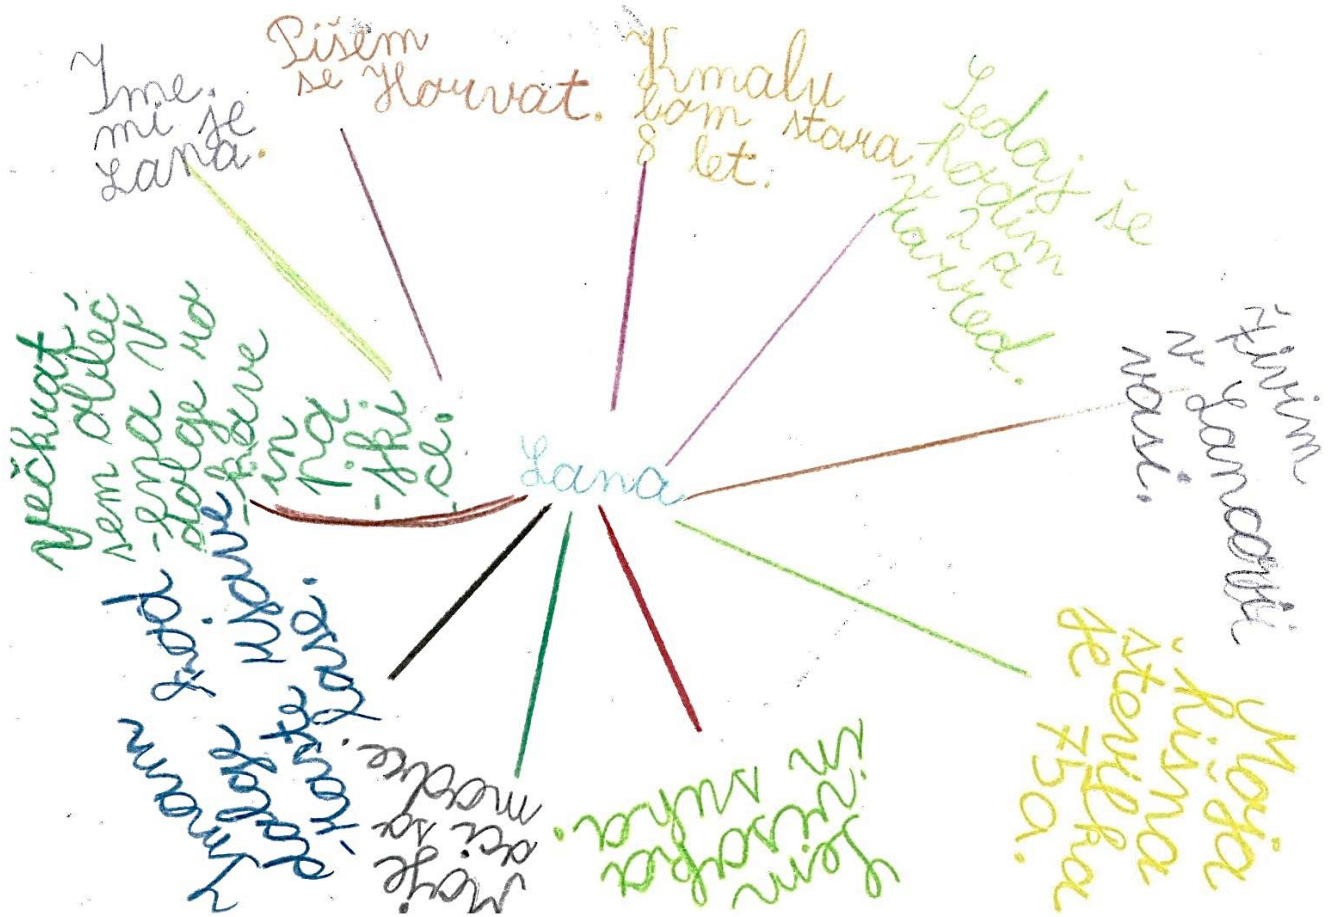 Ime.
mi je
Lana.
Pišem
se Horvat.
Kmalu
bom stara
8 let.
Sedaj še
hodim
v 2 a
razred.
živim
v Lancovi
vasi.
Moja
hišna
številka
je 75a.
Sem
visoka
in suha.
Moje
oči so
modre.
Imam
dolge rjave
lase.
Večkrat
sem obleč
-ena v
dolge ro
-kave
in
Lana